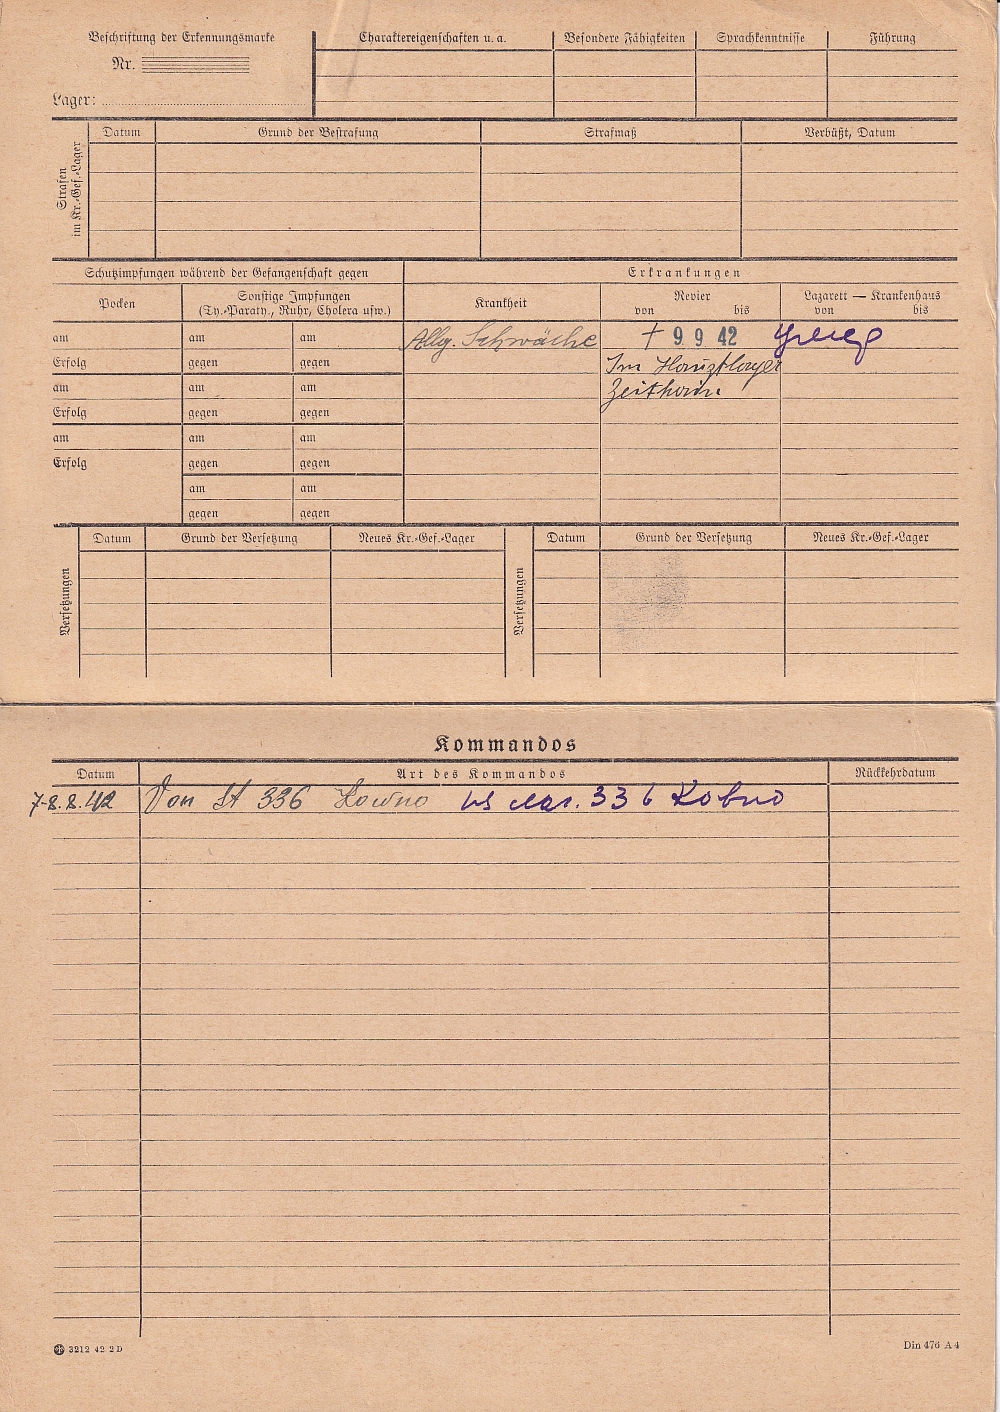 Beschriftung der Erkennungsmarke
Nr.
Lager:
Charaktereigenschaften u. a.
Besondere Fähigkeiten
Sprachkenntnisse
Führung
Strafen
im Kr.-Gef.-Lager
Datum
Grund der Bestrafung
Strafmaß
Verbüßt, Datum
Schutzimpfungen während der Gefangenschaft gegen
Erkrankungen
Pocken
Sonstige Impfungen
(Ty.-Paraty., Ruhr, Cholera usw.)
Krankheit
Revier
von bis
Lazarett — Krankenhaus
von bis
am am am Allg. Schwäche † 9 9 42 умер
Erfolg gegen gegen Im Hauptlager
am am am Zeithain
Erfolg gegen gegen
am am am
Erfolg gegen gegen
am am
gegen gegen
Versetzungen
Datum Grund der Versetzung Neues Kr.-Gef.-Lager
Versetzungen
Datum Grund der Versetzung Neues Kr.-Gef.-Lager
Kommandos
Datum Art des Kommandos Rückkehrdatum
7-8.8.42 Von St 336 Kowno из лаг. 336 Ковно
3212 42 2 D
Din 476 A 4